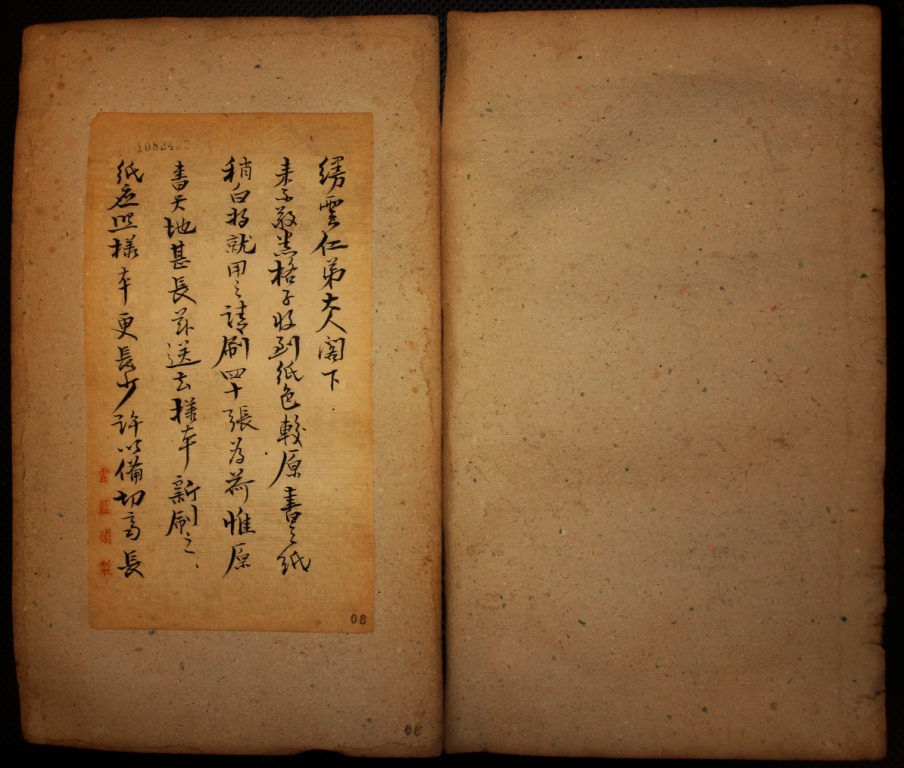 繆雲仁弟大人閣下
来示敬悉格子收到紙色較原書之紙
稍白將就用之請刷四十張為荷惟原
書天地甚長茲送去樣本新刷之
紙应照樣本更長少許以備切齊長
雲藍閣製
08
08